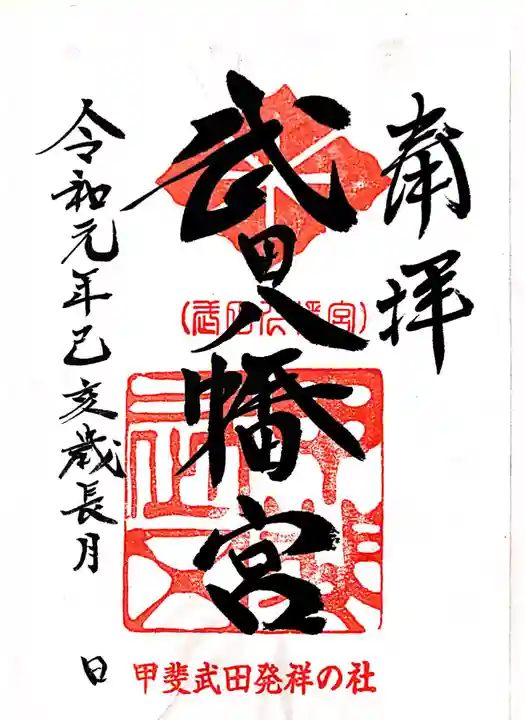 奉拝
武田八幡宮
(武田八幡宮)
令和元年己亥歳長月
日
甲斐武田発祥の社